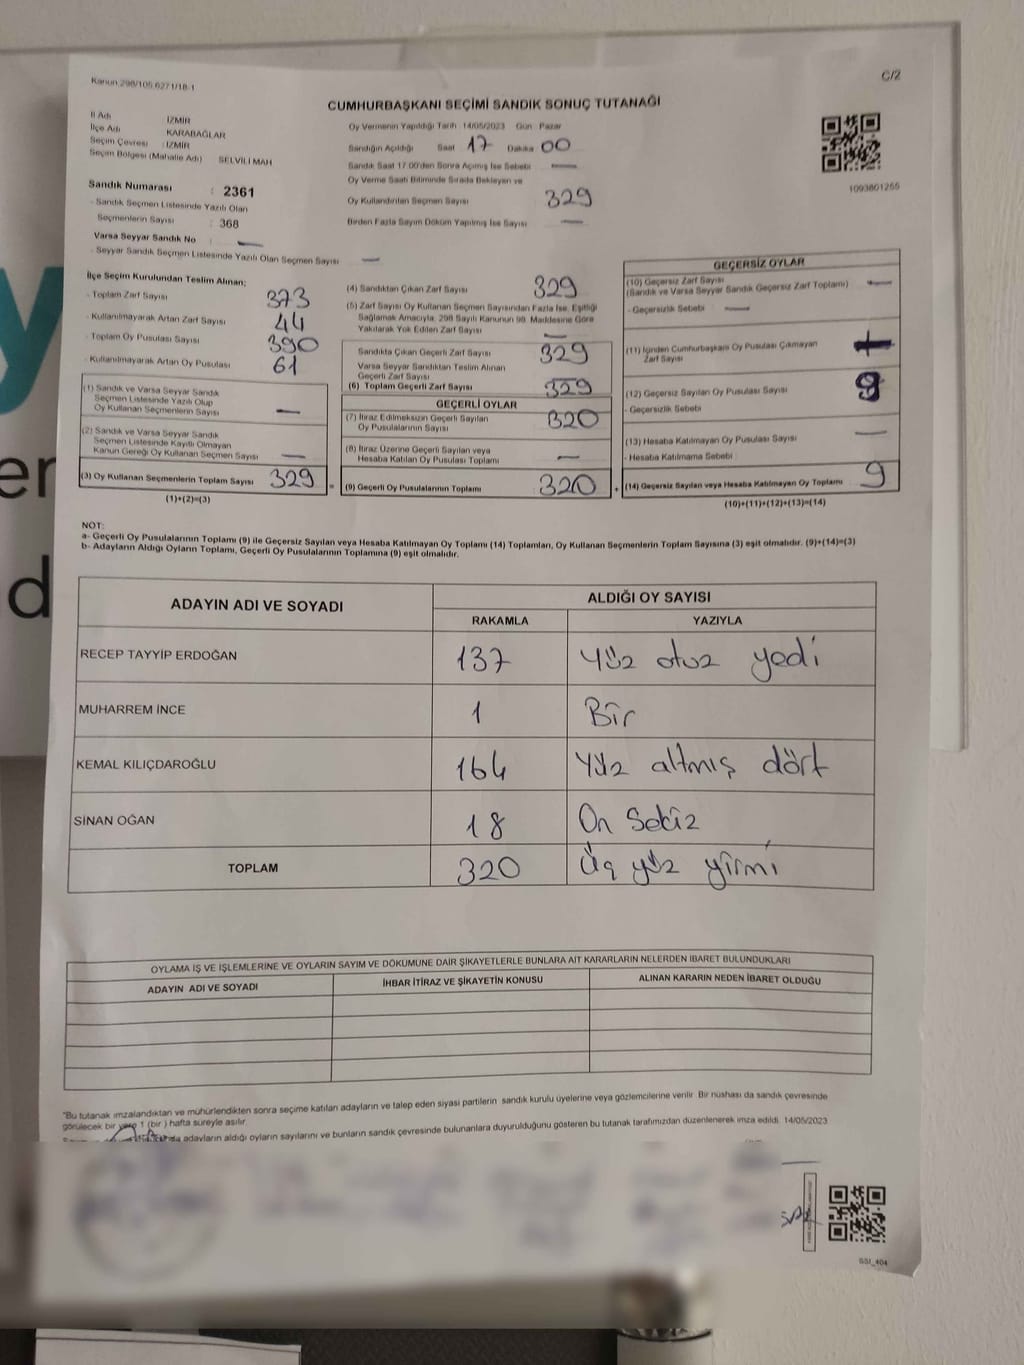 C/2
Kanun 298/105.6271/18-1
CUMHURBAŞKANI SEÇİMİ SANDIK SONUÇ TUTANAĞI
İl Adı İZMİR
İlçe Adı KARABAĞLAR
Seçim Çevresi : İZMİR
Seçim Bölgesi (Mahalle Adı) SELVİLİ MAH
Sandık Numarası : 2361
- Sandık Seçmen Listesinde Yazılı Olan
Seçmenlerin Sayısı : 368
Varsa Seyyar Sandık No : —
- Seyyar Sandık Seçmen Listesinde Yazılı Olan Seçmen Sayısı —
Oy Vermenin Yapıldığı Tarih 14/05/2023 Gün Pazar
Sandığın Açıldığı Saat 17 Dakika 00
Sandık Saat 17.00'den Sonra Açımış İse Sebebi —
Oy Verme Saati Bitiminde Sırada Bekleyen ve
Oy Kullandırılan Seçmen Sayısı 329
Birden Fazla Sayım Döküm Yapılmış İse Sayısı —
1093801255
İlçe Seçim Kurulundan Teslim Alınan;
- Toplam Zarf Sayısı 373
- Kullanılmayarak Artan Zarf Sayısı 44
- Toplam Oy Pusulası Sayısı 390
- Kullanılmayarak Artan Oy Pusulası 61
(1) Sandık ve Varsa Seyyar Sandık
Seçmen Listesinde Yazılı Olup
Oy Kullanan Seçmenlerin Sayısı —
(2) Sandık ve Varsa Seyyar Sandık
Seçmen Listesinde Kayıtlı Olmayan
Kanun Gereği Oy Kullanan Seçmen Sayısı —
(3) Oy Kullanan Seçmenlerin Toplam Sayısı 329 =
(1)+(2)=(3)
(4) Sandıktan Çıkan Zarf Sayısı 329
(5) Zarf Sayısı Oy Kullanan Seçmen Sayısından Fazla İse, Eşitliği
Sağlamak Amacıyla, 298 Sayılı Kanunun 98. Maddesine Göre
Yakılarak Yok Edilen Zarf Sayısı —
Sandıkta Çıkan Geçerli Zarf Sayısı 329
Varsa Seyyar Sandıktan Teslim Alınan
Geçerli Zarf Sayısı
(6) Toplam Geçerli Zarf Sayısı 329
GEÇERLİ OYLAR
(7) İtiraz Edilmeksizin Geçerli Sayılan
Oy Pusulalarının Sayısı 320
(8) İtiraz Üzerine Geçerli Sayılan veya
Hesaba Katılan Oy Pusulası Toplamı —
(9) Geçerli Oy Pusulalarının Toplamı 320 +
GEÇERSİZ OYLAR
(10) Geçersiz Zarf Sayısı
(Sandık ve Varsa Seyyar Sandık Geçersiz Zarf Toplamı) —
- Geçersizlik Sebebi —
(11) İçinden Cumhurbaşkanı Oy Pusulası Çıkmayan
Zarf Sayısı
(12) Geçersiz Sayılan Oy Pusulası Sayısı 9
- Geçersizlik Sebebi
(13) Hesaba Katılmayan Oy Pusulası Sayısı —
- Hesaba Katılmama Sebebi :
(14) Geçersiz Sayılan veya Hesaba Katılmayan Oy Toplamı 9
(10)+(11)+(12)+(13)=(14)
NOT:
a- Geçerli Oy Pusulalarının Toplamı (9) ile Geçersiz Sayılan veya Hesaba Katılmayan Oy Toplamı (14) Toplamları, Oy Kullanan Seçmenlerin Toplam Sayısına (3) eşit olmalıdır. (9)+(14)=(3)
b- Adayların Aldığı Oyların Toplamı, Geçerli Oy Pusulalarının Toplamına (9) eşit olmalıdır.
ADAYIN ADI VE SOYADI ALDIĞI OY SAYISI
RAKAMLA YAZIYLA
RECEP TAYYİP ERDOĞAN 137 Yüz otuz yedi
MUHARREM İNCE 1 Bir
KEMAL KILIÇDAROĞLU 164 Yüz altmış dört
SİNAN OĞAN 18 On Sekiz
TOPLAM 320 Üç yüz yirmi
OYLAMA İŞ VE İŞLEMLERİNE VE OYLARIN SAYIM VE DÖKÜMÜNE DAİR ŞİKAYETLERLE BUNLARA AİT KARARLARIN NELERDEN İBARET BULUNDUKLARI
ADAYIN ADI VE SOYADI İHBAR İTİRAZ VE ŞİKAYETİN KONUSU ALINAN KARARIN NEDEN İBARET OLDUĞU
"Bu tutanak imzalandıktan ve mühürlendikten sonra seçime katılan adayların ve talep eden siyasi partilerin sandık kurulu üyelerine veya gözlemcilerine verilir. Bir nüshası da sandık çevresinde
görülecek bir yere 1 (bir) hafta süreyle asılır.
adayların aldığı oyların sayılarını ve bunların sandık çevresinde bulunanlara duyurulduğunu gösteren bu tutanak tarafımızdan düzenlenerek imza edildi. 14/05/2023
SSİ_404
er
d